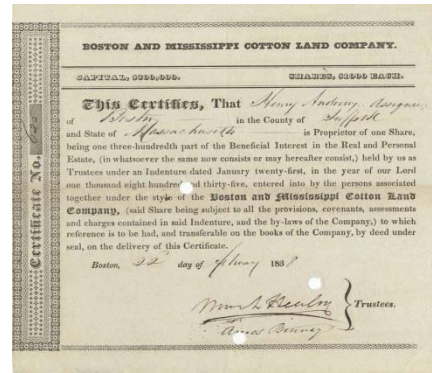 BOSTON AND MISSISSIPPI COTTON LAND COMPANY.
CAPITAL, $300,000. SHARES, $1000 EACH.
This Certifies, That Henry Andrews Assignee,
of Boston in the County of Suffolk
and State of Massachusetts is Proprietor of one Share,
being one three-hundredth part of the Beneficial Interest in the Real and Personal
Estate, (in whatsoever the same now consists or may hereafter consist,) held by us as
Trustees under an Indenture dated January twenty-first, in the year of our Lord
one thousand eight hundred and thirty-five, entered into by the persons associated
together under the style of the Boston and Mississippi Cotton Land
Company, (said Share being subject to all the provisions, covenants, assessments
and charges contained in said Indenture, and the by-laws of the Company,) to which
reference is to be had, and transferable on the books of the Company, by deed under
seal, on the delivery of this Certificate.
Boston, 22 day of February 1838
Trustees.
Amos Binney
Certificate No.